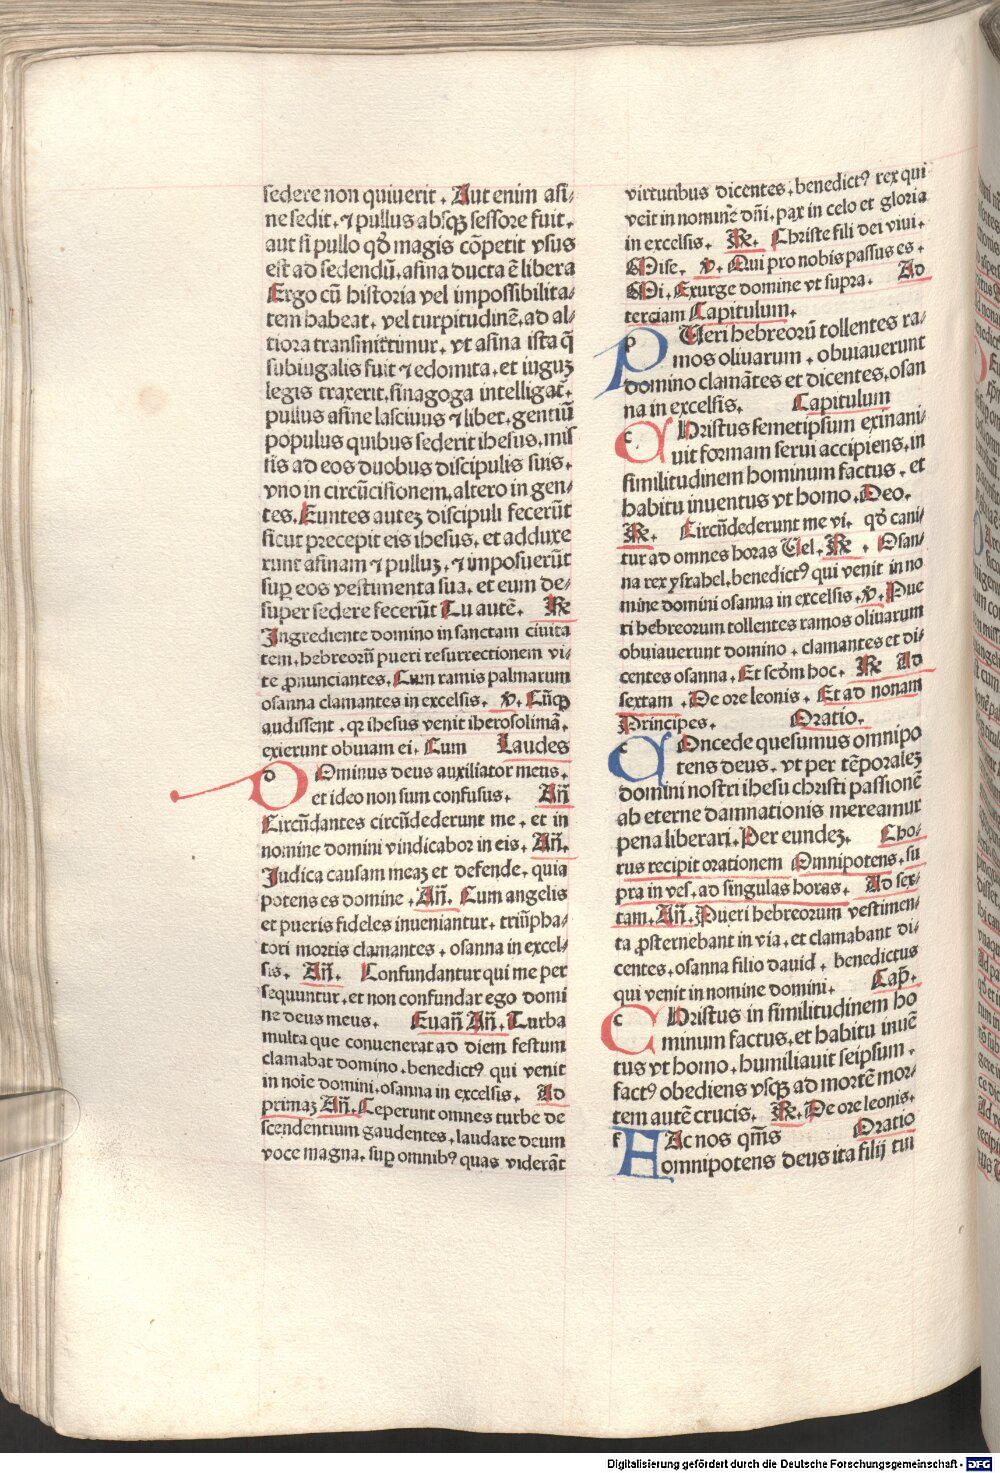 sedere non quiuerit. Aut enim asi/
ne sedit. ⁊ pullus absqꝫ sessore fuit.
aut si pullo qď magis cõpetit vsus
est ad sedendũ. asina ducta ẽ libera
Ergo cũ historia vel impossibilita/
tem habeat. vel turpitudinẽ. ad al/
tiora transmittimur. vt asina ista q̃
subiugalis fuit ⁊ edomita. et iugũ
legis traxerit. sinagoga intelligat̃.
pullus asine lasciuus ⁊ liber. gentiũ
populus quibus sederit ihesus. mis
sis ad eos duobus discipulis suis.
vno in circũcisionem. altero in gen/
tes. Euntes auteꝫ discipuli fecerũt
sicut precepit eis ihesus. et adduxe
runt asinam ⁊ pulluꝫ. ⁊ imposuerũt
suꝑ eos vestimenta sua. et eum de/
super sedere fecerũt Tu autẽ. ℞
Ingrediente domino in sanctam ciuita
tem. hebreorũ pueri resurrectionem vi/
te ꝓnunciantes. Cum ramis palmarum
osanna clamantes in excelsis. ℣. Cũqꝫ
audissent. qꝛ ihesus venit iherosolimã.
exierunt obuiam ei. Cum Laudes
dOminus deus auxiliator meus.
et ideo non sum confusus. Añ
Circũdantes circũdederunt me. et in
nomine domini vindicabor in eis. Añ.
Iudica causam meaꝫ et defende. quia
potens es domine. Añ. Cum angelis
et pueris fideles inueniantur. triũpha/
tori mortis clamantes. osanna in excel/
sis. Añ. Confundantur qui me per
sequuntur. et non confundar ego domi
ne deus meus. Euañ Añ. Turba
multa que conuenerat ad diem festum
clamabat domino. benedictꝰ qui venit
in noĩe domini. osanna in excelsis. Ad
primaꝫ Añ. Ceperunt omnes turbe de
scendentium gaudentes. laudare deum
voce magna. suꝑ omnibꝰ quas viderãt
virtutibus dicentes. benedictꝰ rex qui
veit in nomine dñi. pax in celo et gloria
in excelsis. ℞. Christe fili dei viui.
Mise. ℣. Qui pro nobis passus es.
Mi. Exurge domine vt supra. Ad
terciam Capitulum.
pUeri hebreorũ tollentes ra/
mos oliuarum. obuiauerunt
domino clamãtes et dicentes. osan
na in excelsis. Capitulum
cHristus semetipsum exinani/
uit formam serui accipiens. in
similitudinem hominum factus. et
habitu inuentus vt homo. Deo.
℞. Circũdederunt me vi. qď cani/
tur ad omnes horas Vel. ℞. Osan/
na rex ysrahel. benedictꝰ qui venit in no
mine domini osanna in excelsis. ℣. Pue
ri hebreorum tollentes ramos oliuarum
obuiauerunt domino. clamantes et di/
centes osanna. Et scďm hoc. ℞ Ad
sextam. De ore leonis. Et ad nonam
Principes. Oratio.
cOncede quesumus omnipo
tens deus. vt per tẽporaleꝫ
domini nostri ihesu christi passionẽ
ab eterne damnationis mereamur
pena liberari. Per eundeꝫ. Cho/
rus recipit orationem Omnipotens. su
pra in ves. ad singulas horas. Ad sex/
tam. Añ. Pueri hebreorum vestimen/
ta ꝓsternebant in via. et clamabant di/
centes. osanna filio dauid. benedictus
qui venit in nomine domini. Cap̃.
cHristus in similitudinem ho
minum factus. et habitu inuẽ
tus vt homo. humiliauit seipsum.
factꝰ obediens vsqꝫ ad mortẽ mor/
tem autẽ crucis. ℞. De ore leonis.
fAc nos qm̃s Oratio
omnipotens deus ita filij tui
Digitalisierung gefördert durch die Deutsche Forschungsgemeinschaft - DFG